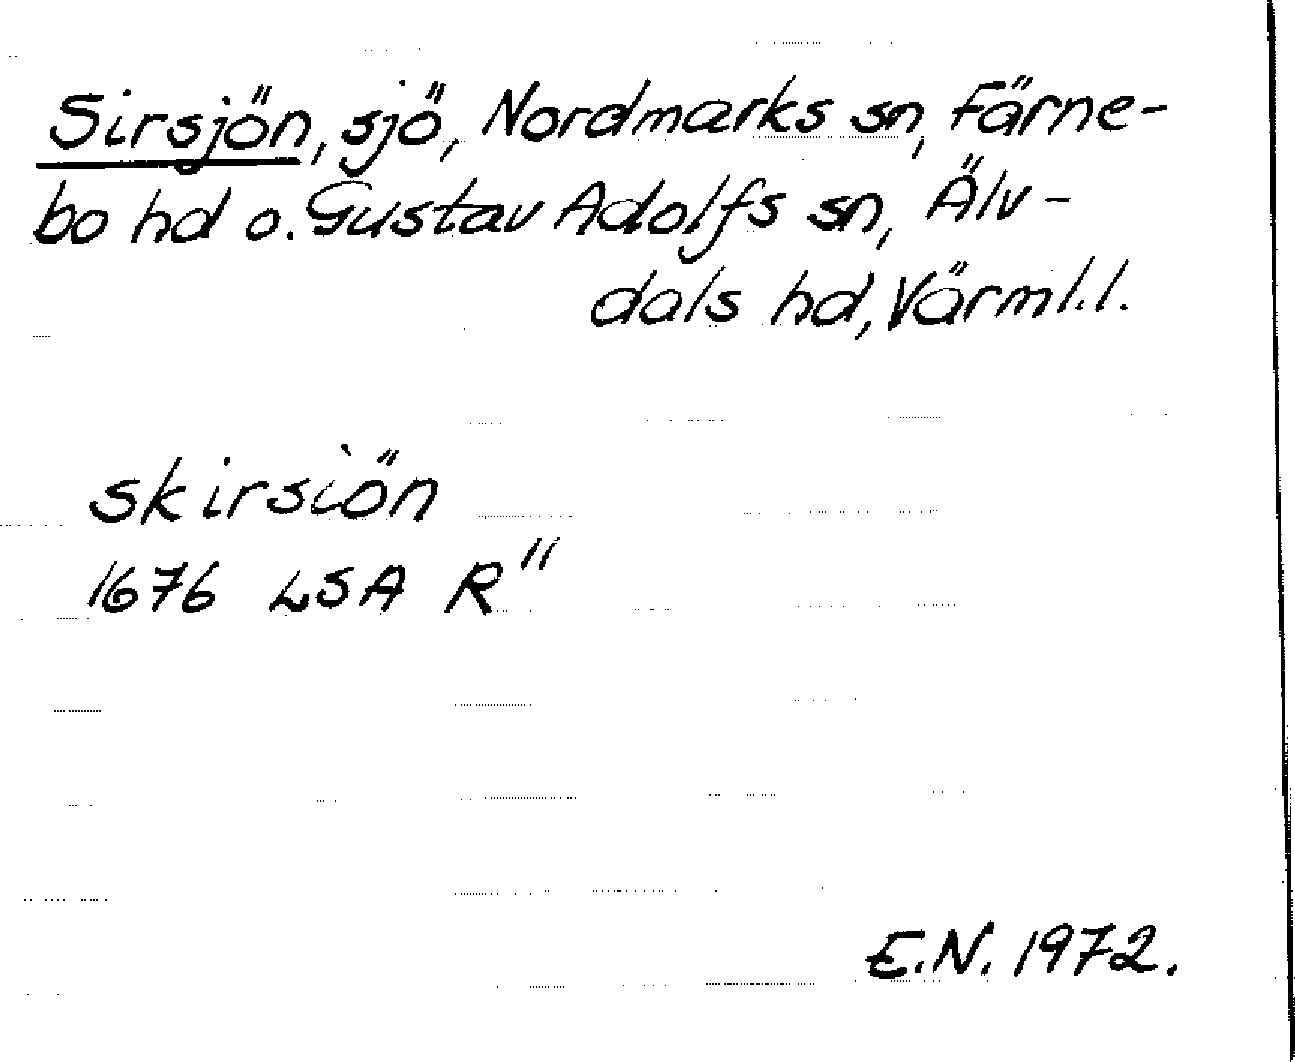 Sirsjön, sjö, Nordmarks sn, Färne-
bo hd o. Gustav Adolfs sn, Älv-
dals hd, Värml.l.
skirsiön
1676 LSA R"
E.N. 1972.